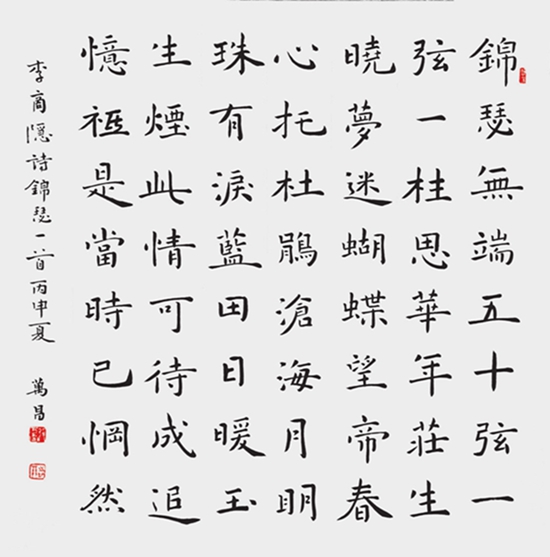 錦瑟無端五十弦一
弦一柱思華年莊生
曉夢迷蝴蝶望帝春
心托杜鵑滄海月明
珠有淚藍田日暖玉
生煙此情可待成追
憶祇是當時已惘然
李商隱詩錦瑟一首丙申夏 萬昌